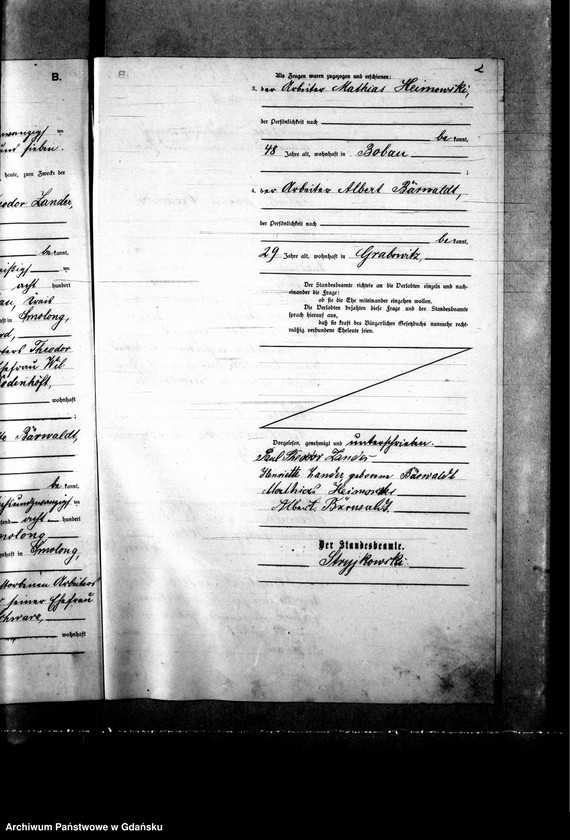 B.
wanzig ten
und sieben.
heute, zum Zwecke der
Theodor Zander,
be kannt,
eißig ten
acht hundert
haft in Smolong,
Theodor
Ehefrau Wil
wohnhaft
Bärwaldt,
be kannt,
undzwanzig ten
acht hundert
molong
haft in Smolong,
storbenen Arbeiters
seiner Ehefrau
wohnhaft
2
Als Zeugen waren zugezogen und erschienen:
3. der Arbeiter Mathias Heimowski,
der Persönlichkeit nach
be kannt,
48 Jahre alt, wohnhaft in Bobau
;
4. der Arbeiter Albert Bärwaldt,
der Persönlichkeit nach
be kannt,
29 Jahre alt, wohnhaft in Grabowitz,
Der Standesbeamte richtete an die Verlobten einzeln und nach-
einander die Frage:
ob sie die Ehe miteinander eingehen wollen.
Die Verlobten bejahten diese Frage und der Standesbeamte
sprach hierauf aus,
daß sie kraft des Bürgerlichen Gesetzbuchs nunmehr recht-
mäßig verbundene Eheleute seien.
Vorgelesen, genehmigt und unterschrieben.
Paul Theodor Zander
Henriette Zander geborene Bärwaldt
Mathias Heimowski
Albert Bärwaldt
Der Standesbeamte.
Stryjkowski.
Archiwum Państwowe w Gdańsku